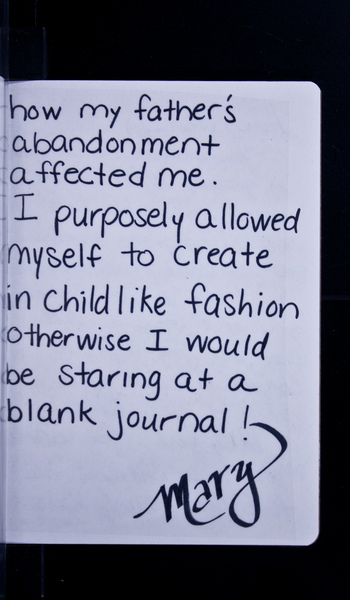 how my father's
abandonment
affected me.
I purposely allowed
myself to create
in childlike fashion
otherwise I would
be staring at a
blank journal!
Mary